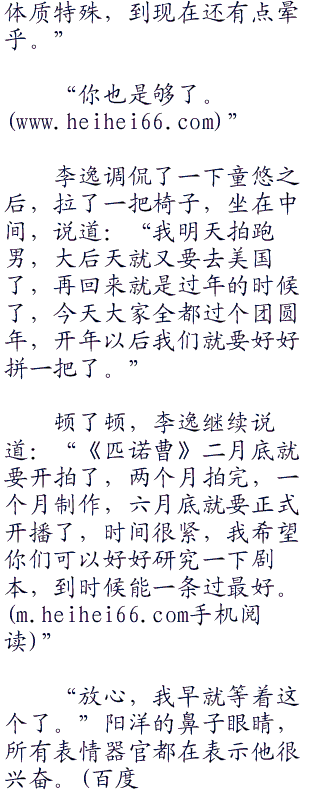 体质特殊，到现在还有点晕
乎。”
“你也是够了。
(www.heihei66.com)”
李逸调侃了一下童悠之
后，拉了一把椅子，坐在中
间，说道：“我明天拍跑
男，大后天就又要去美国
了，再回来就是过年的时候
了，今天大家全都过个团圆
年，开年以后我们就要好好
拼一把了。”
顿了顿，李逸继续说
道：“《匹诺曹》二月底就
要开拍了，两个月拍完，一
个月制作，六月底就要正式
开播了，时间很紧，我希望
你们可以好好研究一下剧
本，到时候能一条过最好。
(m.heihei66.com手机阅
读)”
“放心，我早就等着这
个了。”阳洋的鼻子眼睛，
所有表情器官都在表示他很
兴奋。(百度